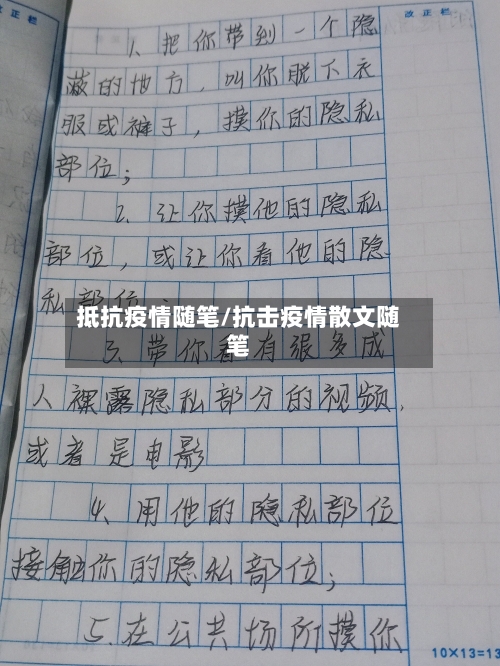 改正栏
改正栏
1、把你带到一个隐
蔽的地方，叫你脱下衣
服或裤子，摸你的隐私
部位；
2、让你摸他的隐私
部位，或让你看他的隐
私部位；
抵抗疫情随笔/抗击疫情散文随
笔
3、带你看有很多成
人裸露隐私部分的视频，
或者是电影
4、用他的隐私部位
接触你的隐私部位；
5.在公共场所摸你
10×13=13